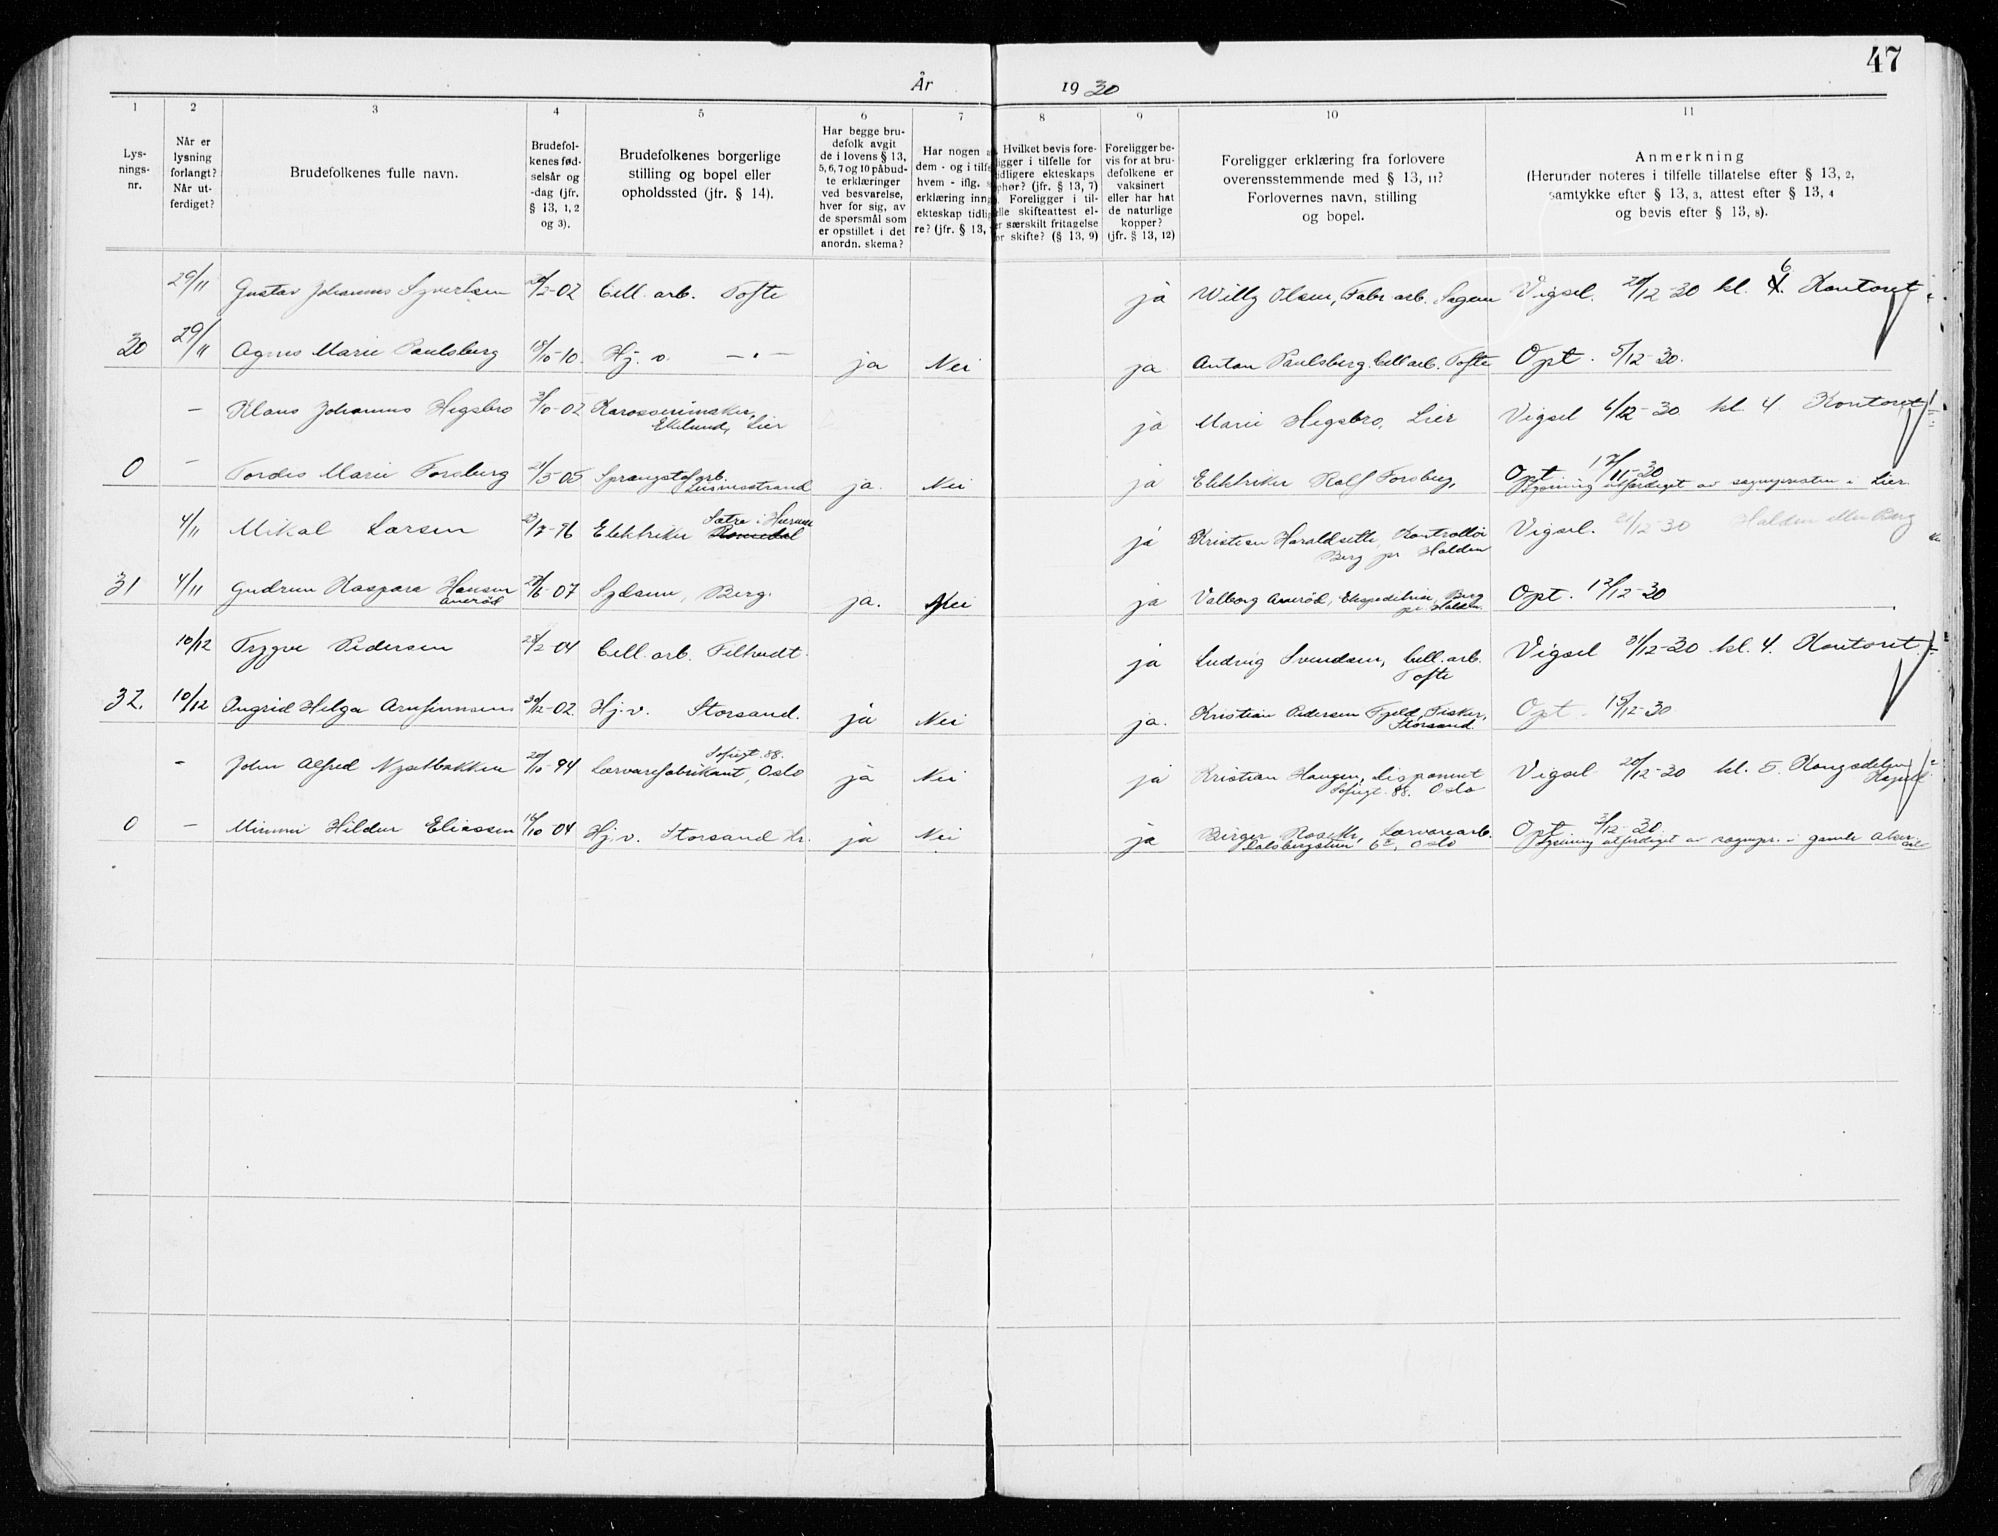 47
År 1930
1 2 3 4 5 6 7 8 9 10 11
Lys-
nings-
nr.
Når er
lysning
forlangt?
Når ut-
ferdiget?
Brudefolkenes fulle navn.
Brudefol-
kenes fød-
selsår og
-dag (jfr.
§ 13, 1, 2
og 3).
Brudefolkenes borgerlige
stilling og bopel eller
opholdssted (jfr. § 14).
Har begge bru-
defolk avgit
de i lovens § 13,
5, 6, 7 og 10 påbud-
te erklæringer
ved besvarelse,
hver for sig, av
de spørsmål som
er opstillet i det
anordn. skema?
Har nogen a
dem - og i tilfe
hvem - iflg. s
erklæring inng
ekteskap tidlig
re? (jfr. § 13,
Hvilket bevis fore-
ligger i tilfelle for
tidligere ekteskaps
ophør? (jfr. § 13, 7)
Foreligger i til-
felle skifteattest el-
er særskilt fritagelse
or skifte? (§ 13, 9)
Foreligger be-
vis for at bru-
defolkene er
vaksinert
eller har hat
de naturlige
kopper?
(jfr. § 13, 12)
Foreligger erklæring fra forlovere
overensstemmende med § 13, 11?
Forlovernes navn, stilling
og bopel.
Anmerkning
(Herunder noteres i tilfelle tillatelse efter § 13, 2,
samtykke efter § 13, 3, attest efter § 13, 4
og bevis efter § 13, 8).
29/11 Gustav Johannes Syvertsen 2-02 Cell. arb. Tofte ja Willy Olsen, Fabr arb. Sagen Vigsel. 20/12-30 kl. 6 Kontoret
30 29/11 Agnes Marie Paulsberg 18/10-10. Hj. v. —"— ja Nei ja Anton Paulsberg. Cell arb. Tofte Opt. 5/12-30.
– Klaus Johannes Hegsbro 3/10-02 Karosserimaker, Eklund, Lier ja Marie Hegsbro, Lier Vigsel 6/12-30 kl. 4. Kontoret
0 – Tordis Marie Forsberg 21/5-05 Sprængstofarb. ja. Nei ja Elektriker Rolf Forsberg, Opt 17/11-30
Lysning utferdiget av sognepresten i Lier.
4/11 Mikal Larsen 23/7-96 Elektriker Sætre i Hurum ja Kristian Haraldsette, Kontrollør
Berg pr Halden Vigsel. 21/12-30 Halden eller Berg
31 4/11 Gudrun Kaspara Hansen
Amerød 27/6-07 Sydame, Berg. ja. Nei ja Valborg Amerød, Ekspeditrise, Berg
pr. Halden. Opt. 13/12-30
10/12 Trygve Pedersen 28/2-04 Cell. arb. Filtvedt. ja Ludvig Svendsen, Cell. arb.
Tofte Vigsel 31/12-30 kl. 4. Kontoret.
32. 10/12 Ingrid Helga 30/12-02. Hj. v. Storsand. ja Nei ja. Kristian Pedersen Fjeld, Fisker,
Storsand. Opt. 15/12-30
– John Alfred Nysetbakken 20/10-94 Lærvarefabrikant, Sofiegt. 88. Oslo ja Nei ja Kristian Haugen, disponent
Sofiegt. 88. Oslo Vigsel 20/12-30 kl. 5. Kongsdelen
Kapel
0 – Minni Hildur Eliassen 16/10 04 Hj. v. Storsand Hr. ja Nei ja Birger Lærvarearb.
Oslo Opt 3/12-30
Lysning utferdiget av sognepr. i gamle Aker